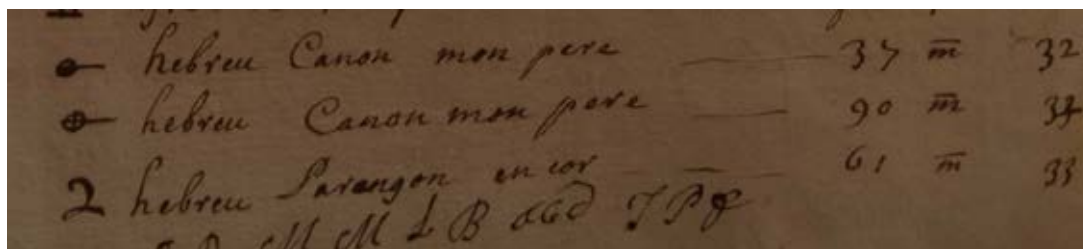 hebreu Canon mon pere 37 m̅ 32
hebreu Canon mon pere 90 m̅ 33
2 hebreu Parangon en cor 61 m̅ 33
M M L B